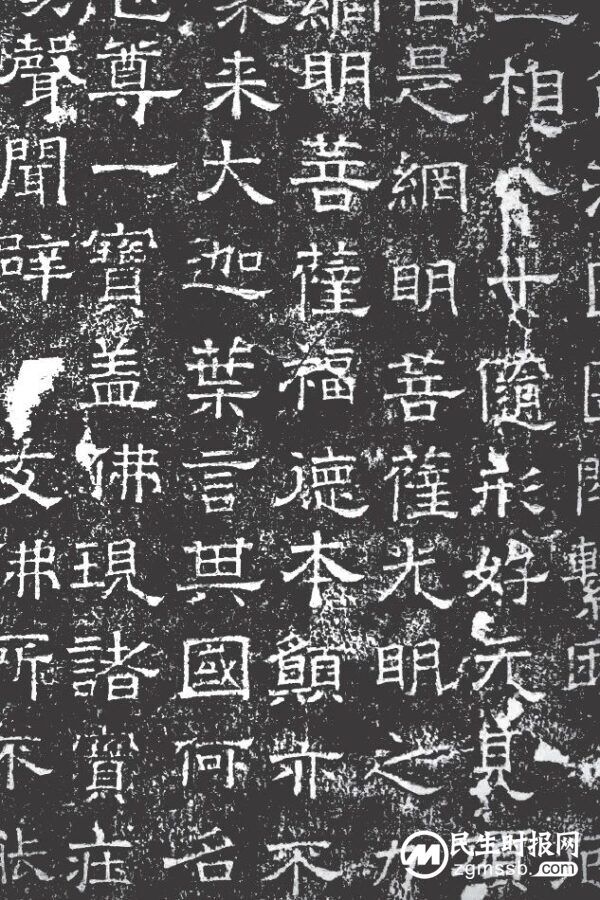 相八隨形好无見
是網明菩薩光明之力
網明菩薩福德本願亦不
未大迦葉言其國何名
尊一寶盖佛現諸寶莊
聲聞辟支佛所不能
民生时报网
zgmssb.com